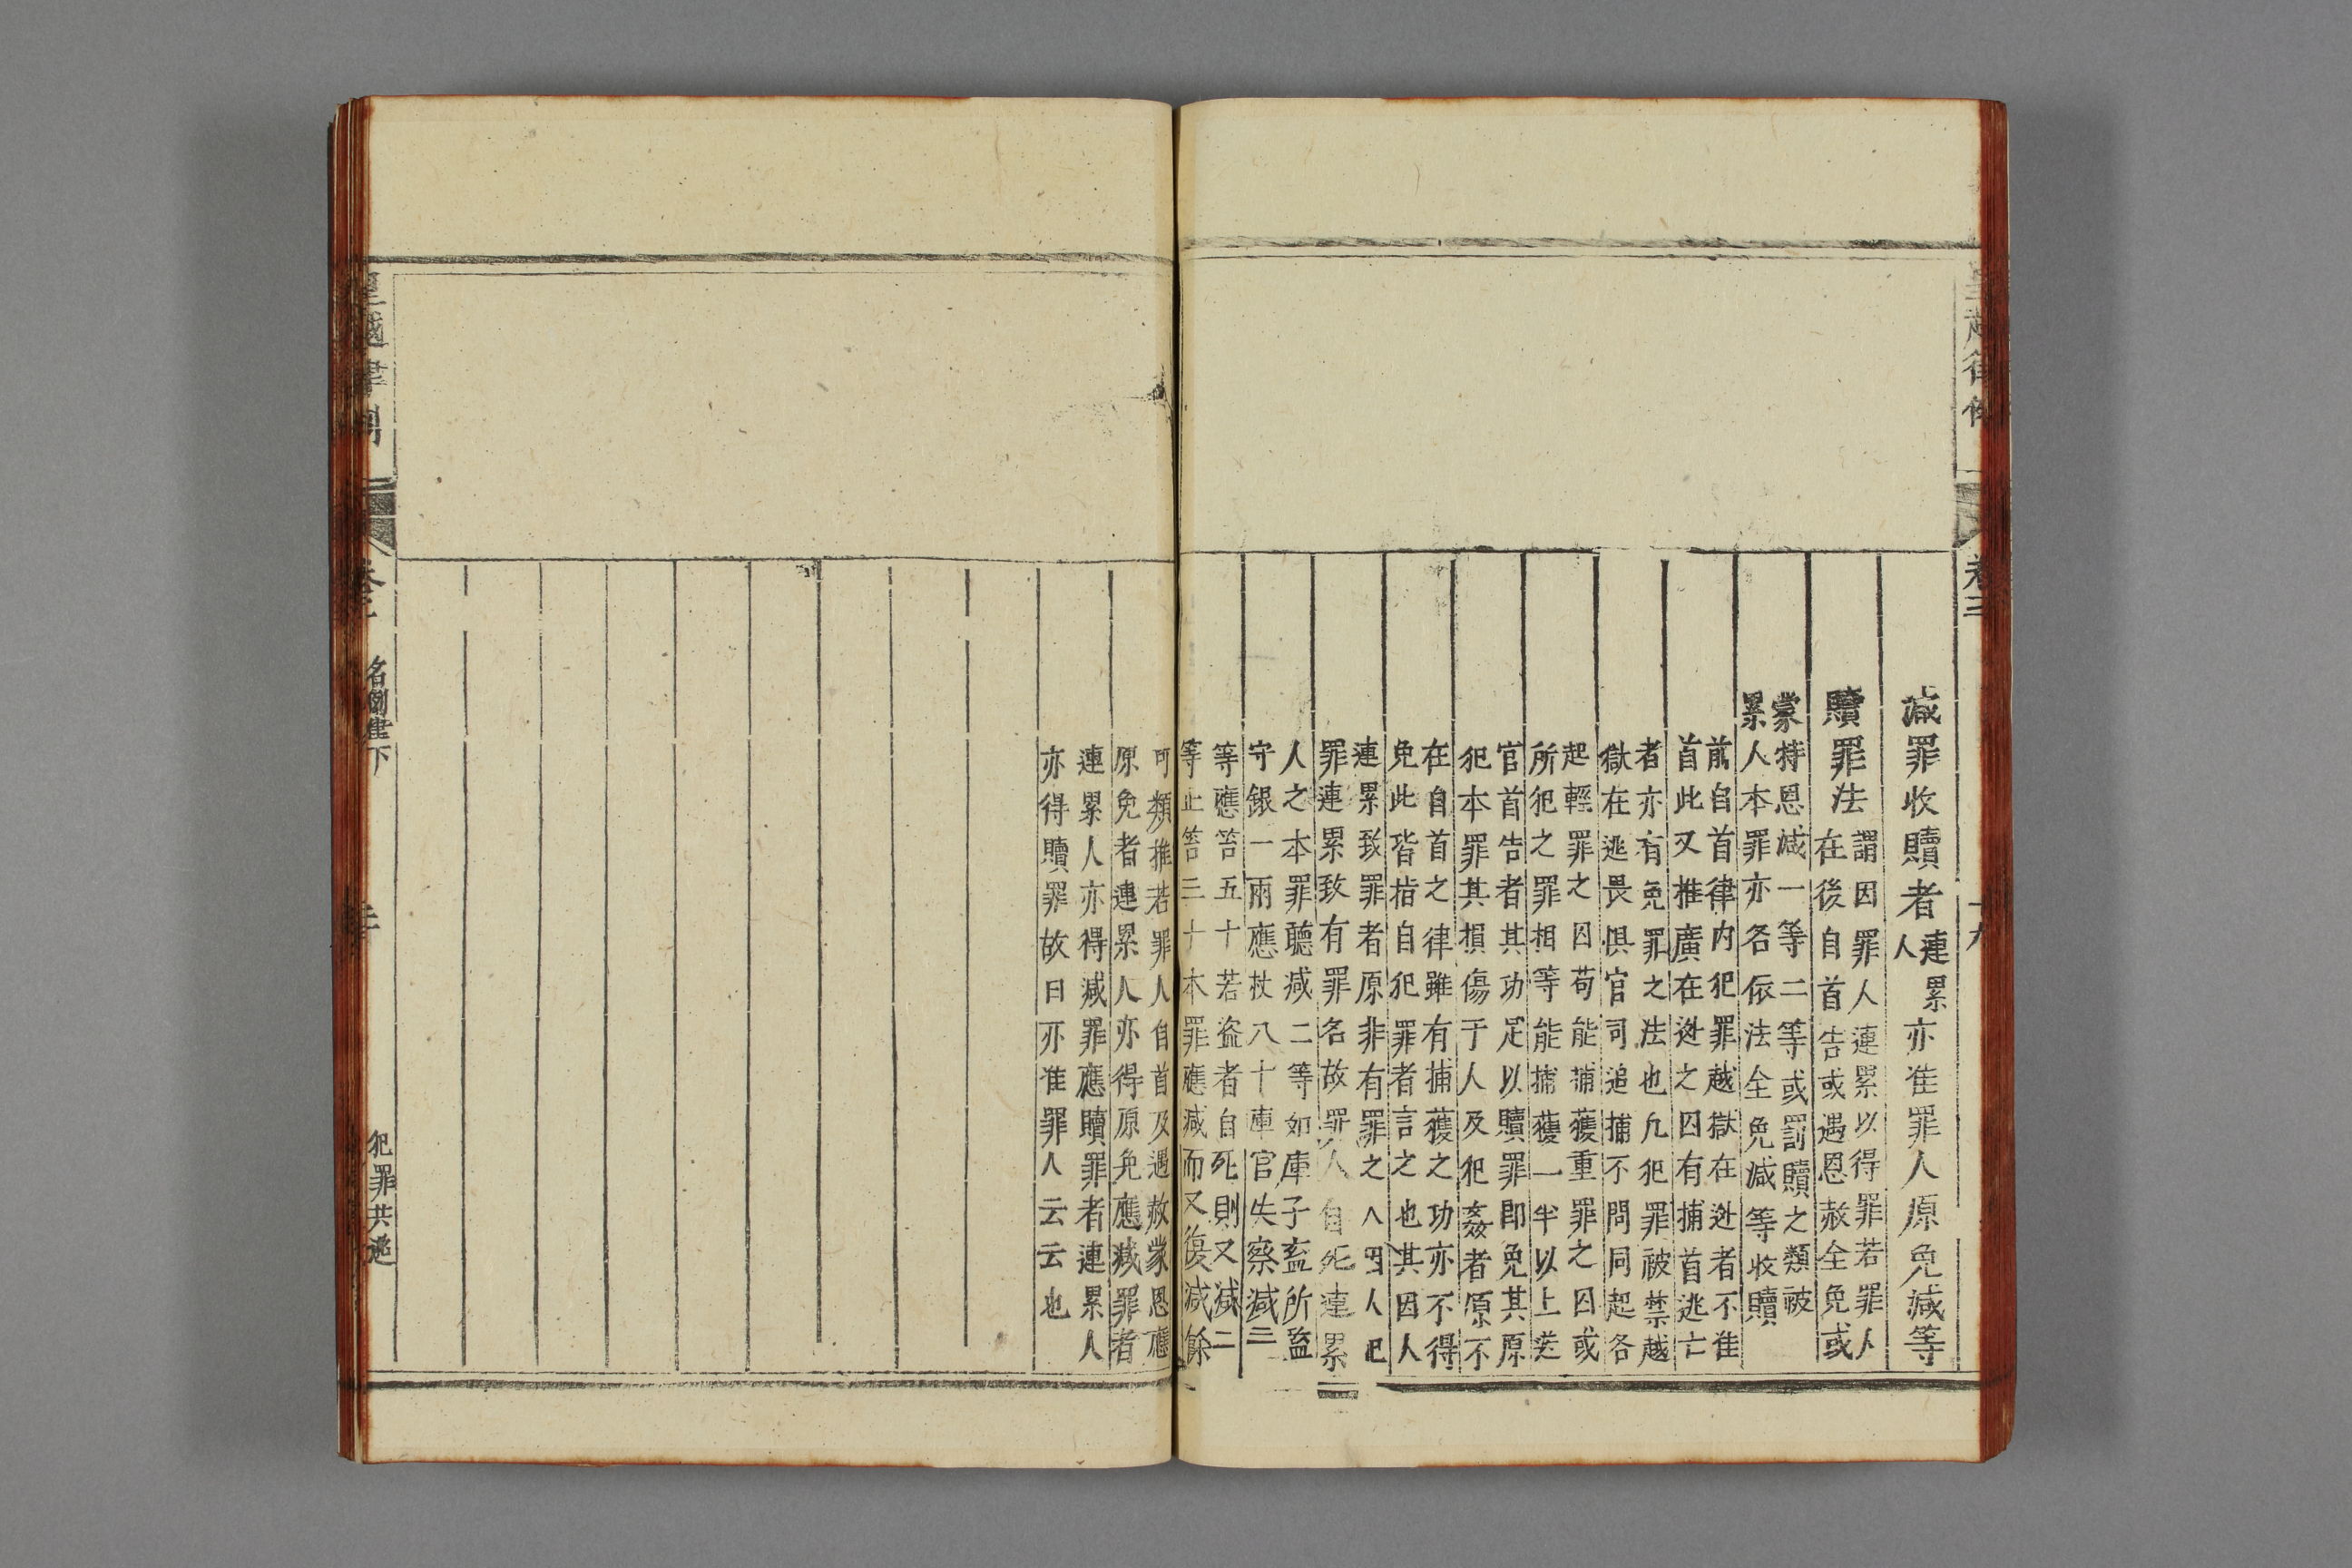 皇越律例
卷三
十九
減罪收贖者連累人亦准罪人原免減等
贖罪法謂因罪人連累以得罪若罪人
在後自首告或遇恩赦全免或
蒙特恩減一等二等或罰贖之類被
累人本罪亦名依法全免減等收贖
前自首律內犯罪越獄在逃者不准
首此又推廣在逃之囚有捕首逃亡
者亦有免罪之法也凡犯罪被禁越
獄在逃畏惧官司追捕不問同起各
起輕罪之囚苟能捕獲重罪之囚或
所犯之罪相等能捕獲一半以上送
官首告者其功足以贖罪即免其原
犯本罪其損傷于人及犯姦者原不
在自首之律雖有捕獲之功亦不得
免此皆指自犯罪者言之也其因人
連累致罪者原非有罪之人因人犯
罪連累致有罪名故罪人自死連累
人之本罪聽減二等如庫子盜所監
守銀一兩應杖八十庫官失察減三
等應笞五十若盜者自死則又減二
等止笞三十本罪應減而又復減餘
可類推若罪人自首及遇赦蒙恩應
原免者連累人亦得原免應減罪者
連累人亦得減罪應贖罪者連累人
亦得贖罪故曰亦准罪人云云也
皇越律例
卷三
名例律下
犯罪共逃